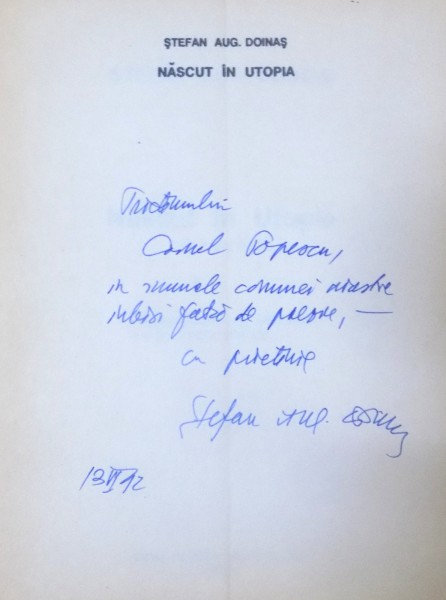 ȘTEFAN AUG. DOINAȘ
NĂSCUT ÎN UTOPIA
Popescu,
în numele comunei noastre
iubiri față de poezie, —
cu prietenie
Ștefan Aug. Doinaș
13 VI 92